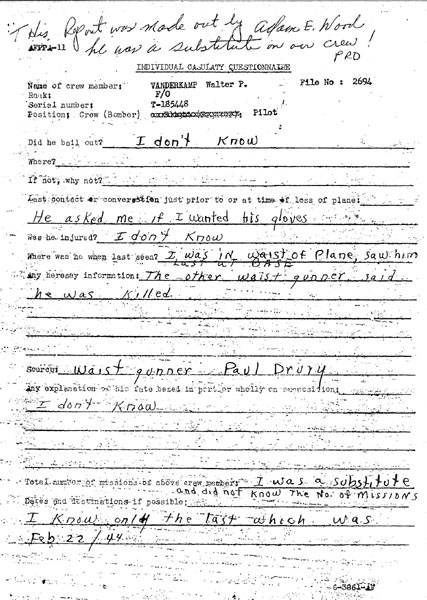 This Report was made out by Adam E. Wood
AFPPA-11 he was a substitute on our crew!
PRD
INDIVIDUAL CASUALTY QUESTIONNAIRE
Name of crew member: VANDERKAMP Walter P. File No : 2694
Rank: F/O
Serial number: T-185448
Position: Crew (Bomber) Pilot
Did he bail out? I don't Know
Where?
If not, why not?
Last contact or conversation just prior to or at time of loss of plane:
He asked me if I wanted his gloves
Was he injured? I don't Know
Where was he when last seen? I was in waist of Plane, saw him
Last at BASE
Any heresey information: The other waist gunner said
he was killed.
Source: Waist gunner Paul Drury
Any explanation of his fate based in part or wholly on supposition:
I don't Know
Total number of missions of above crew member: I was a substitute
and did not know The No. of Missions
Dates and destinations if possible:
I Know only the last which was
Feb 22/44
6-3861-AF